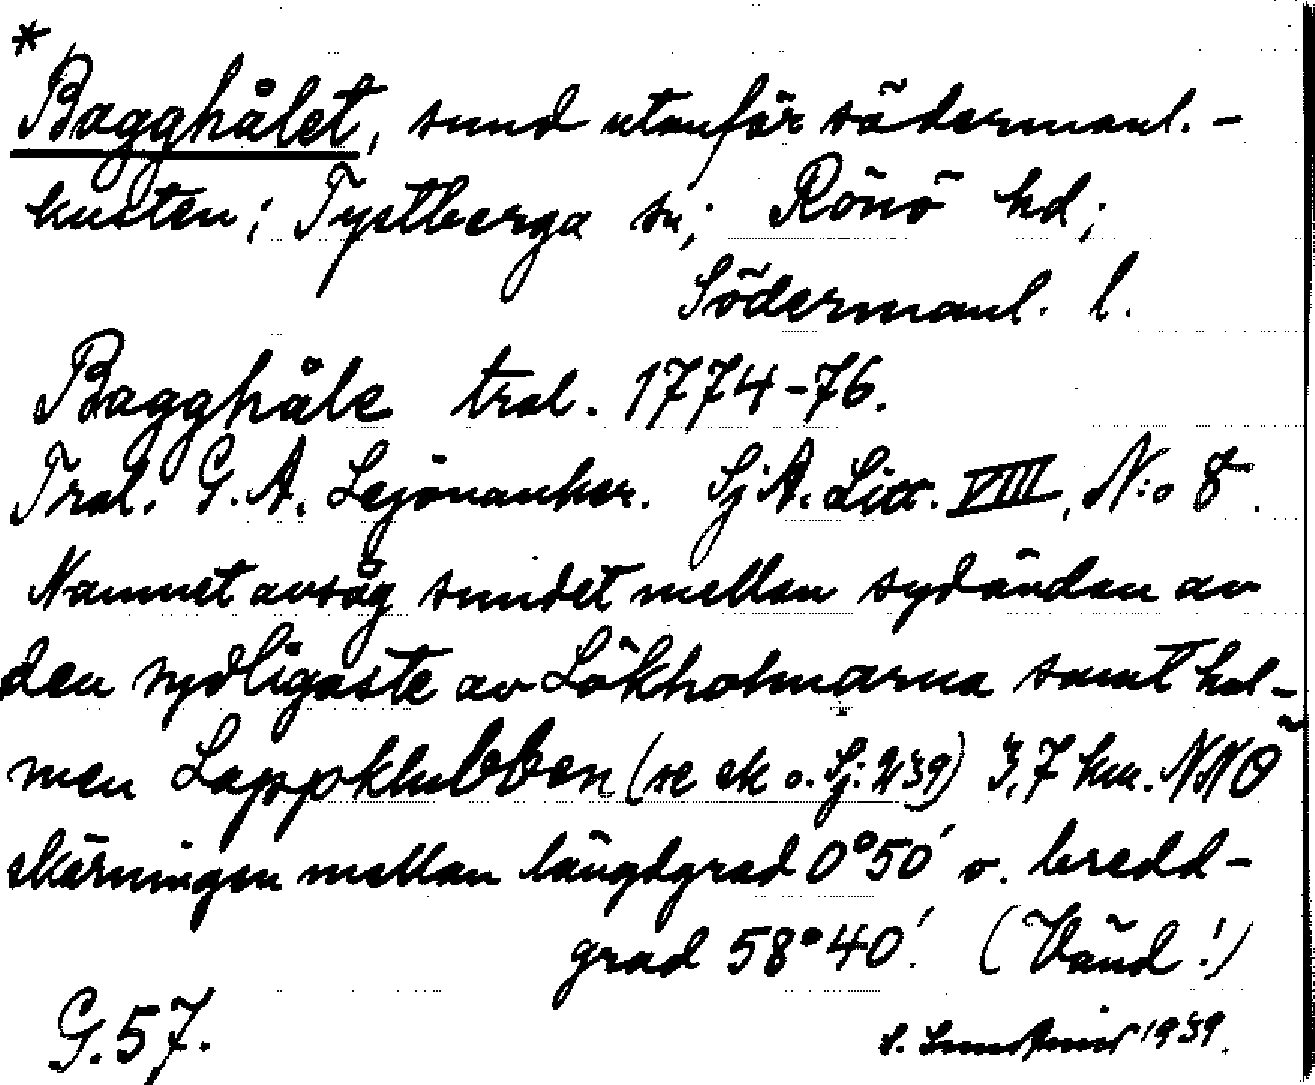 *
Bagghålet, sund utanför södermanl.-
kusten; Tystberga sn; Rönö hd;
Södermanl. l.
Bagghåle tral. 1774-76.
Tral. G. A. Lejonanker. SjA. Litt. VIII, N:o 8.
Namnet avsåg sundet mellan sydändan av
den sydligaste av Lökholmarna samt hol-
men Lappklubben (se ek o. Sj: 239) 3,7 km. NNÖ
skärningen mellan längdgrad 0°50' o. bredd-
grad 58°40'. (Vänd!)
G.57. 1939.